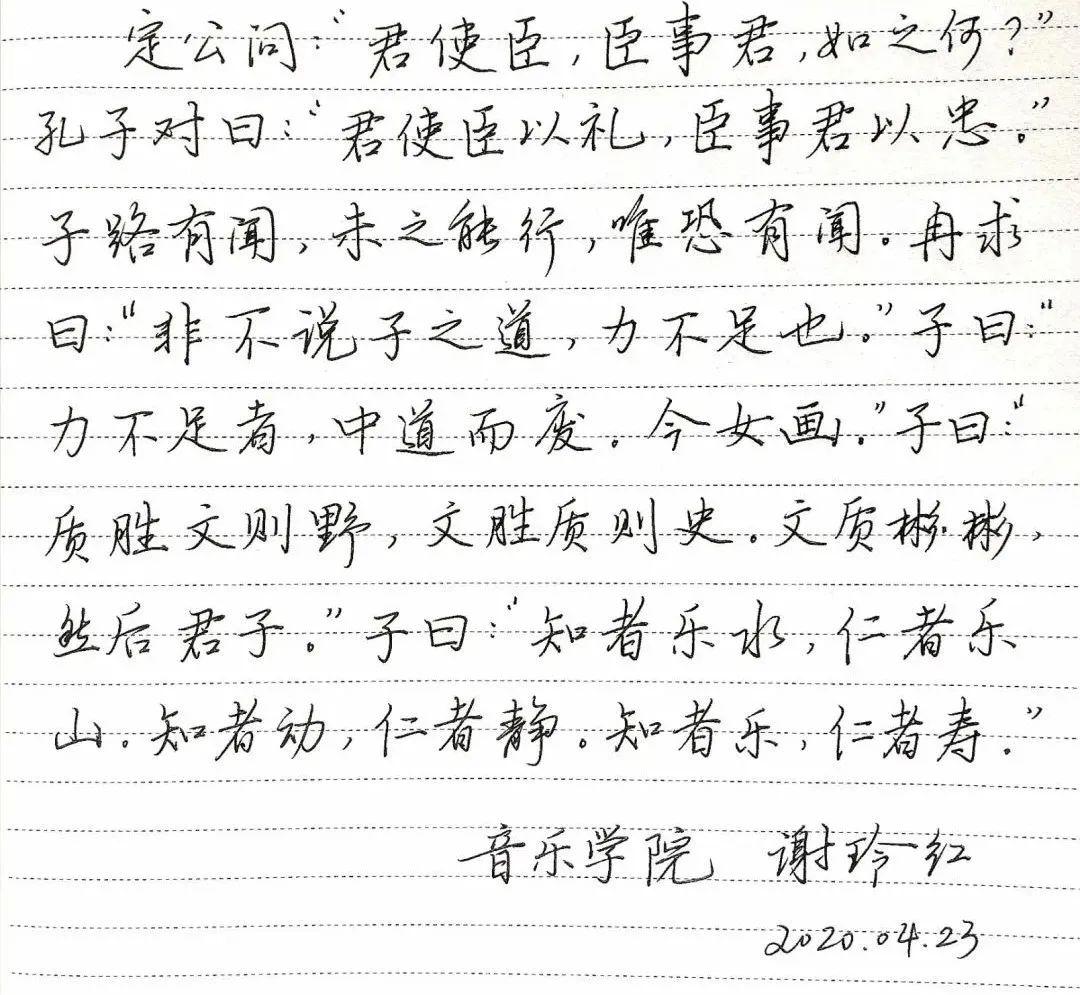 定公问:“君使臣,臣事君,如之何?”
孔子对曰:“君使臣以礼,臣事君以忠。”
子路有闻,未之能行,唯恐有闻。冉求
曰:“非不说子之道,力不足也。”子曰:“
力不足者,中道而废。今女画。”子曰:“
质胜文则野,文胜质则史。文质彬彬,
然后君子。”子曰:“知者乐水,仁者乐
山。知者动,仁者静。知者乐,仁者寿。”
音乐学院 谢玲红
2020.04.23